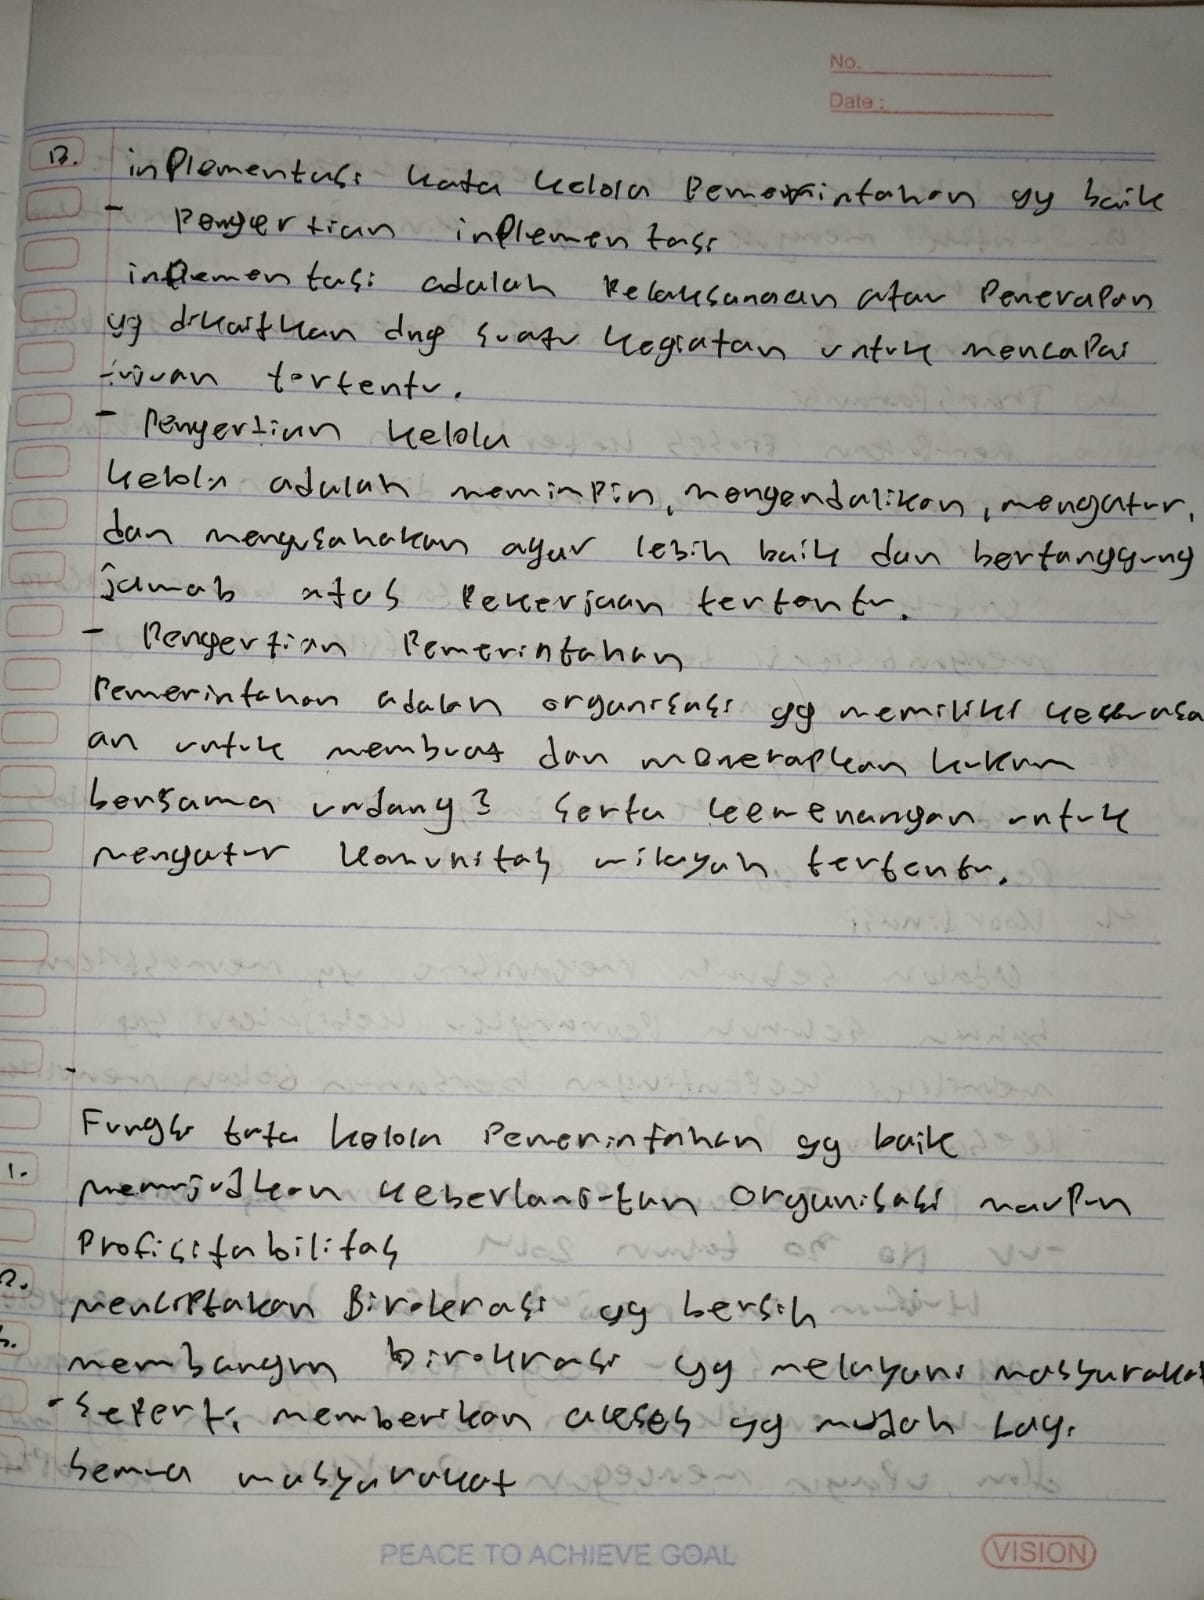 No.
Date :
B. inplementasi kata kelola Pemerintahan yg baik
- Pengertian inplementasi
inplementasi adalah Pelaksanaan atau Penerapan
yg dikaitkan dng suatu kegiatan untuk mencapai
tujuan tertentu.
- Pengertian kelola
kelola adalah memimpin, mengendalikan, mengatur,
dan mengusahakan agar lebih baik dan bertanggung
jawab atas Pekerjaan tertentu.
- Pengertian Pemerintahan
Pemerintahan adalah organisasi yg memiliki kekuasa
an untuk membuat dan menerapkan hukum
bersama undang2 serta kewenangan untuk
mengatur komunitas wilayah tertentu.
-
Fungsi tata kelola Pemerintahan yg baik
1. mewujudkan keberlanjutan organisasi maupun
Profisitabilitas
2. menciptakan Birokrasi yg bersih
3. membangun birokrasi yg melayani masyarakat
- seperti memberikan akses yg mudah bagi
semua masyarakat
PEACE TO ACHIEVE GOAL
VISION